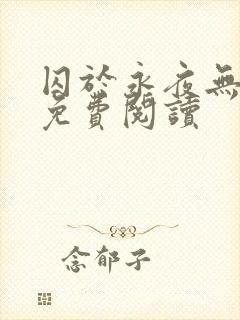 囚於永夜無
免費閱讀
念郁子